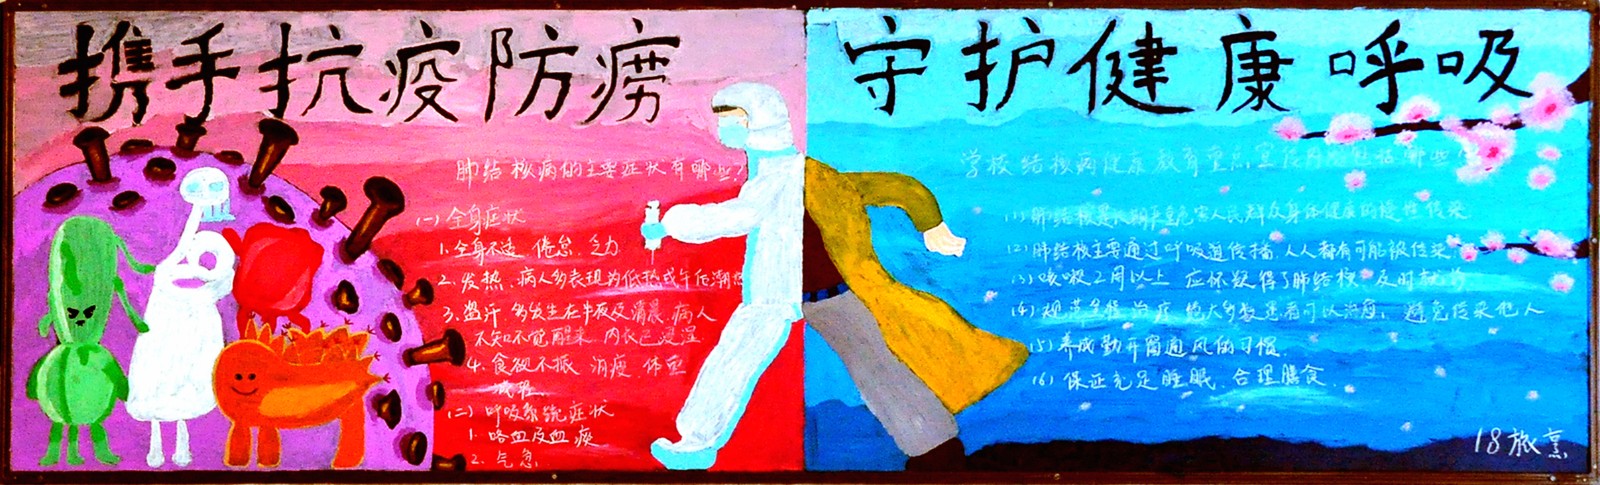 携手抗疫防痨
守护健康呼吸
肺结核病的主要症状有哪些?
(一)全身症状
1.全身不适 倦怠、乏力
2.发热、病人多表现为低热或午后潮热
3.盗汗 多发生在半夜及清晨、病人
不知不觉醒来 内衣已浸湿
4.食欲不振 消瘦、体重
减轻
(二)呼吸系统症状
1.咯血及血痰
2.气急
学校结核病健康教育重点
(1)肺结核是长期严重危害人民群众身体健康的慢性传染
(2)肺结核主要通过呼吸道传播、人人都有可能被传染
(3)咳嗽2周以上 应怀疑得了肺结核 及时就诊
(4)规范全程治疗 绝大多数患者可以治愈、避免传染他人
(5)养成勤开窗通风的习惯
(6)保证充足睡眠、合理膳食.
18旅烹